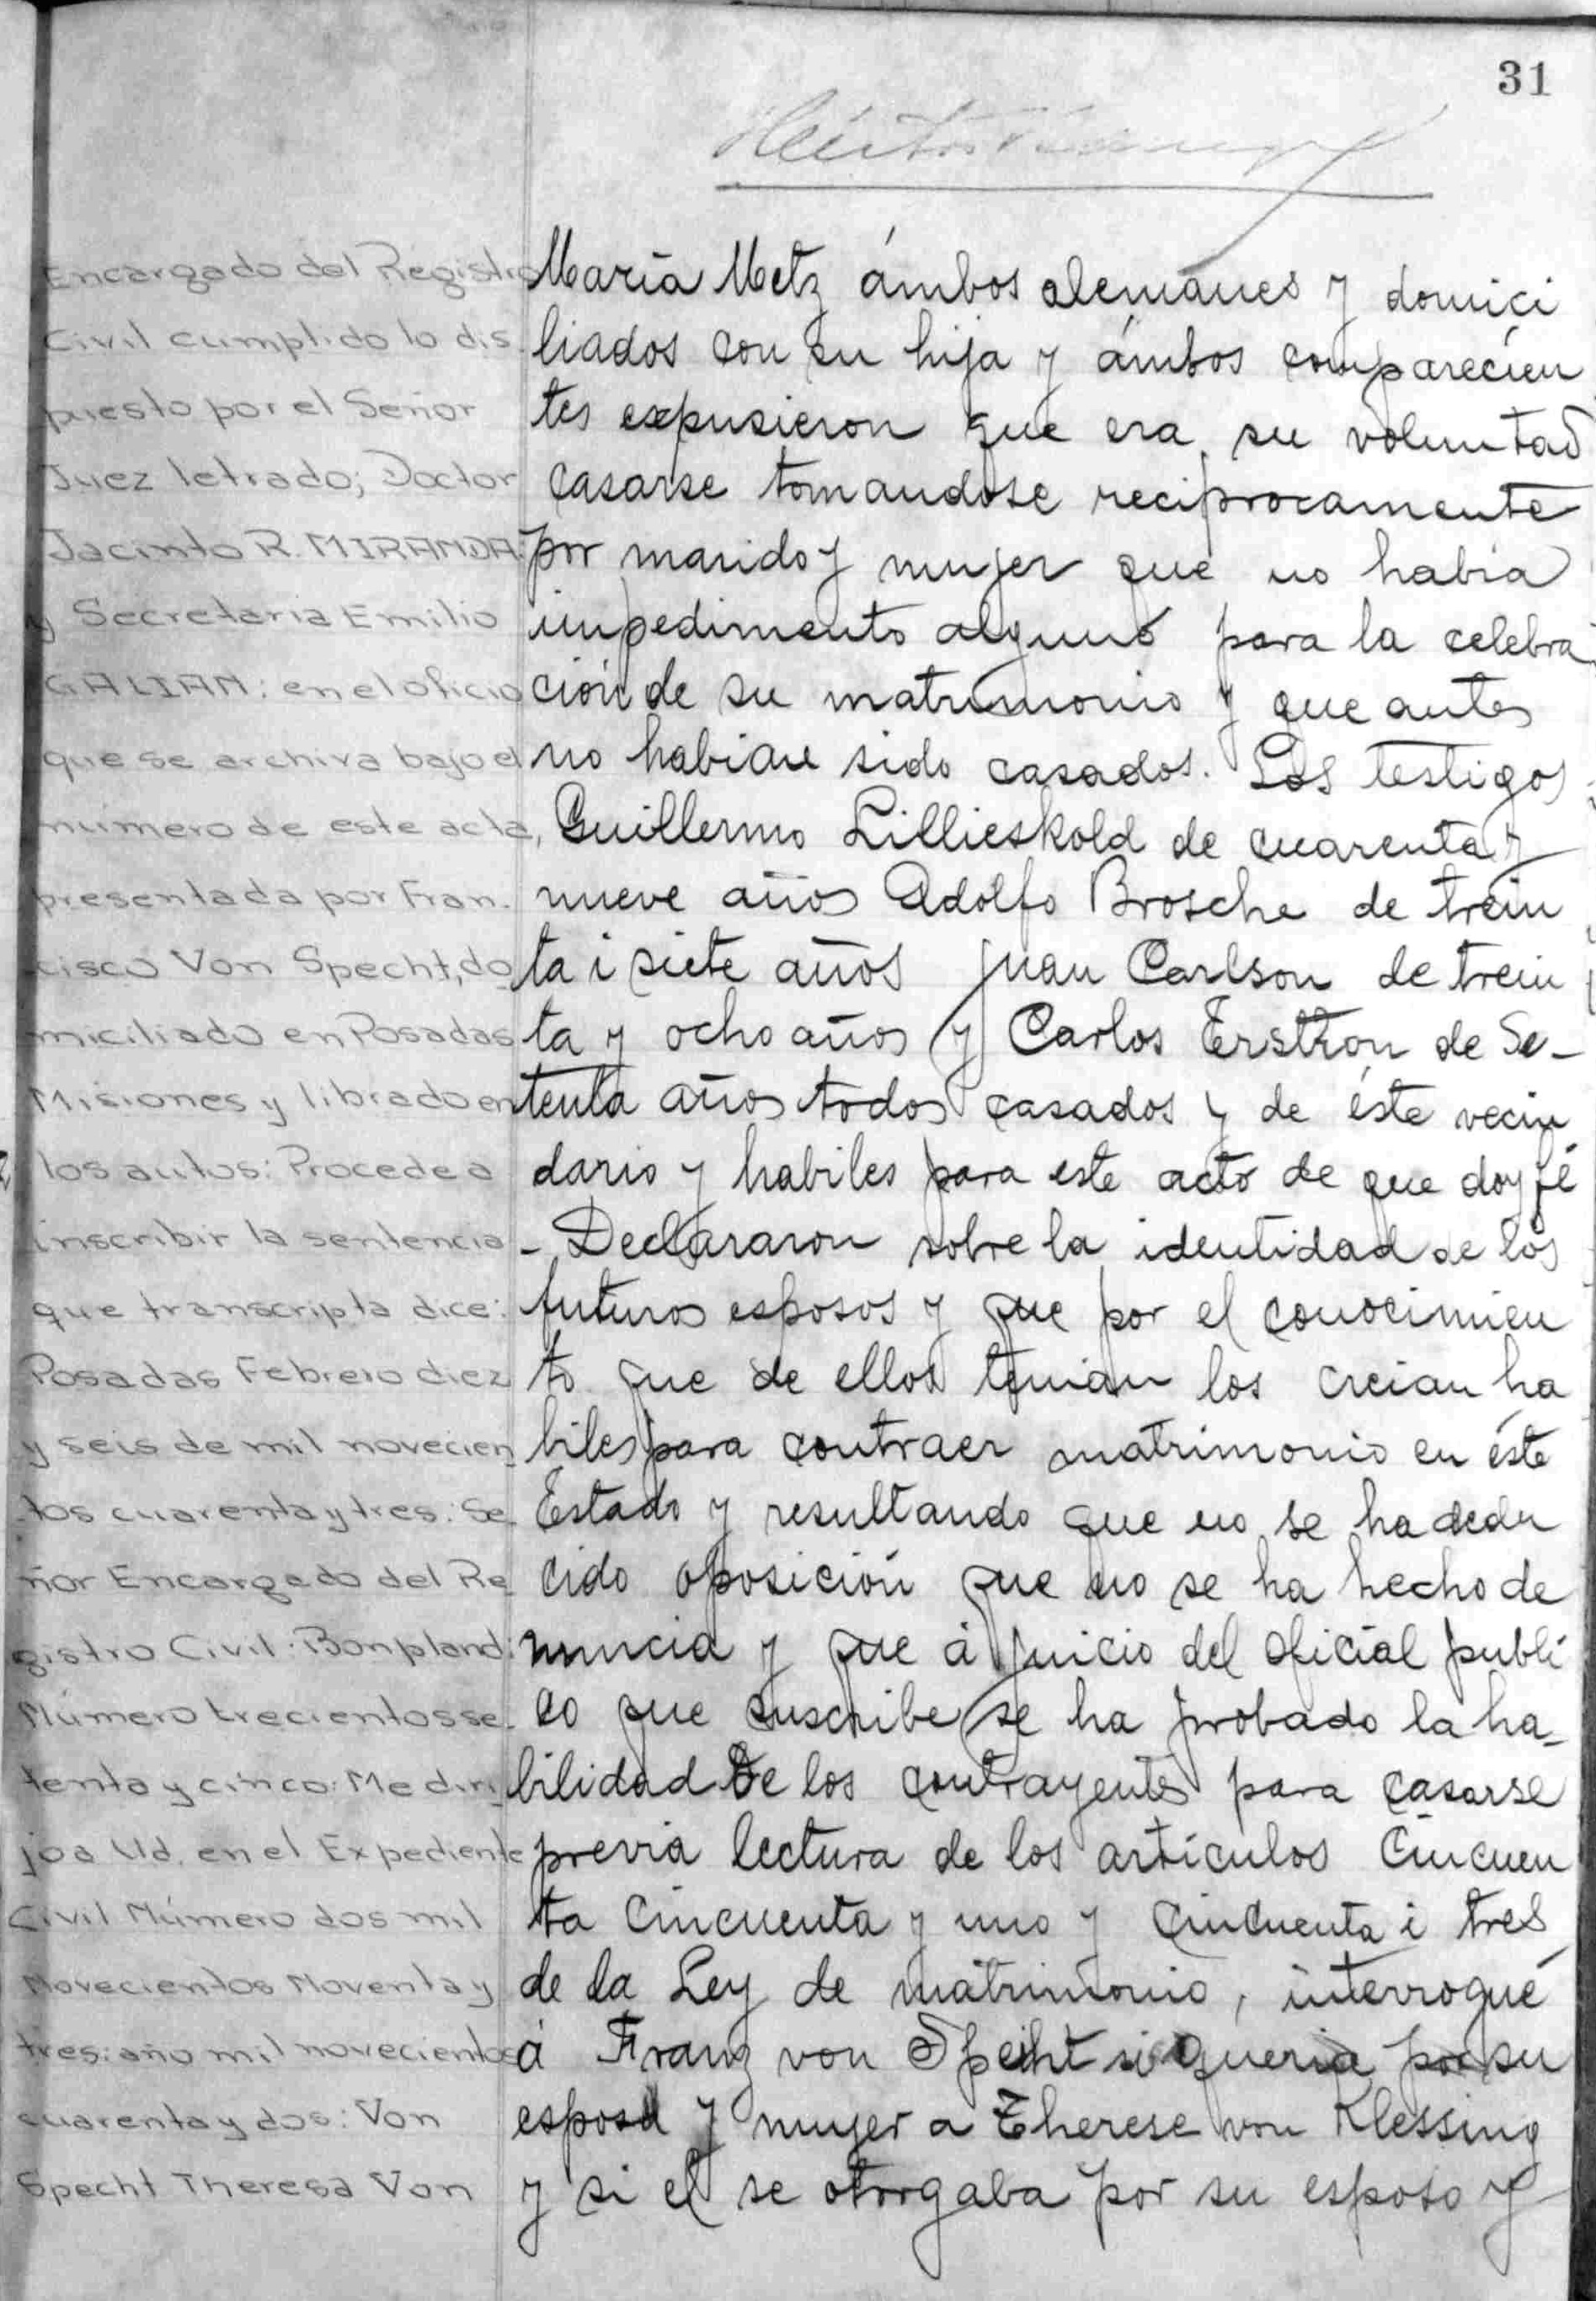 31
Encargado del Registro
Civil cumplido lo dis
puesto por el Señor
Juez letrado; Doctor
Jacinto R. MIRANDA:
y Secretaria Emilio
GALIAN: en el oficio
que se archiva bajo el
número de este acta,
presentada por Fran-
cisco Von Specht, do
miciliado en Posadas
Misiones y librado en
los autos: Procede a
inscribir la sentencia
que transcripta dice:
Posadas Febrero diez
y seis de mil novecien
tos cuarenta y tres: Se
ñor Encargado del Re
gistro Civil: Bonpland:
Número trecientos se-
tenta y cinco: Me diri
jo a Ud. en el Expediente
Civil Número dos mil
Novecientos Noventa y
tres: año mil novecientos
cuarenta y dos: Von
Specht Theresa Von
María Metz ámbos alemanes y domici
liados con su hija y ámbos comparecien
tes expusieron que era su voluntad
casarse tomandose reciprocamente
por marido y mujer que no había
impedimento alguno para la celebra
ción de su matrimonio y que antes
no habian sido casados. Los testigos
Guillermo Lillieskold de cuarenta y
nueve años Adolfo Brosche de trein
ta i siete años Juan Carlson de trein
ta y ocho años y Carlos Erstron de Se-
tenta años todos casados y de éste vecin
dario y habiles para este acto de que doy fé
- Declararon sobre la identidad de los
futuros esposos y que por el conocimien
to que de ellos tenian los creian ha
biles para contraer matrimonio en éste
Estado y resultando que no se ha dedu
cido oposición que no se ha hecho de
nuncia y que á juicio del oficial publi
co que suscribe se ha probado la ha-
bilidad de los contrayentes para casarse
previa lectura de los artículos Cincuen
ta cincuenta y uno y cincuenta i tres
de la Ley de matrimonio, interrogué
á Franz von Specht si queria por su
esposa y mujer a Therese von Klessing
y si el se otorgaba por su esposo y